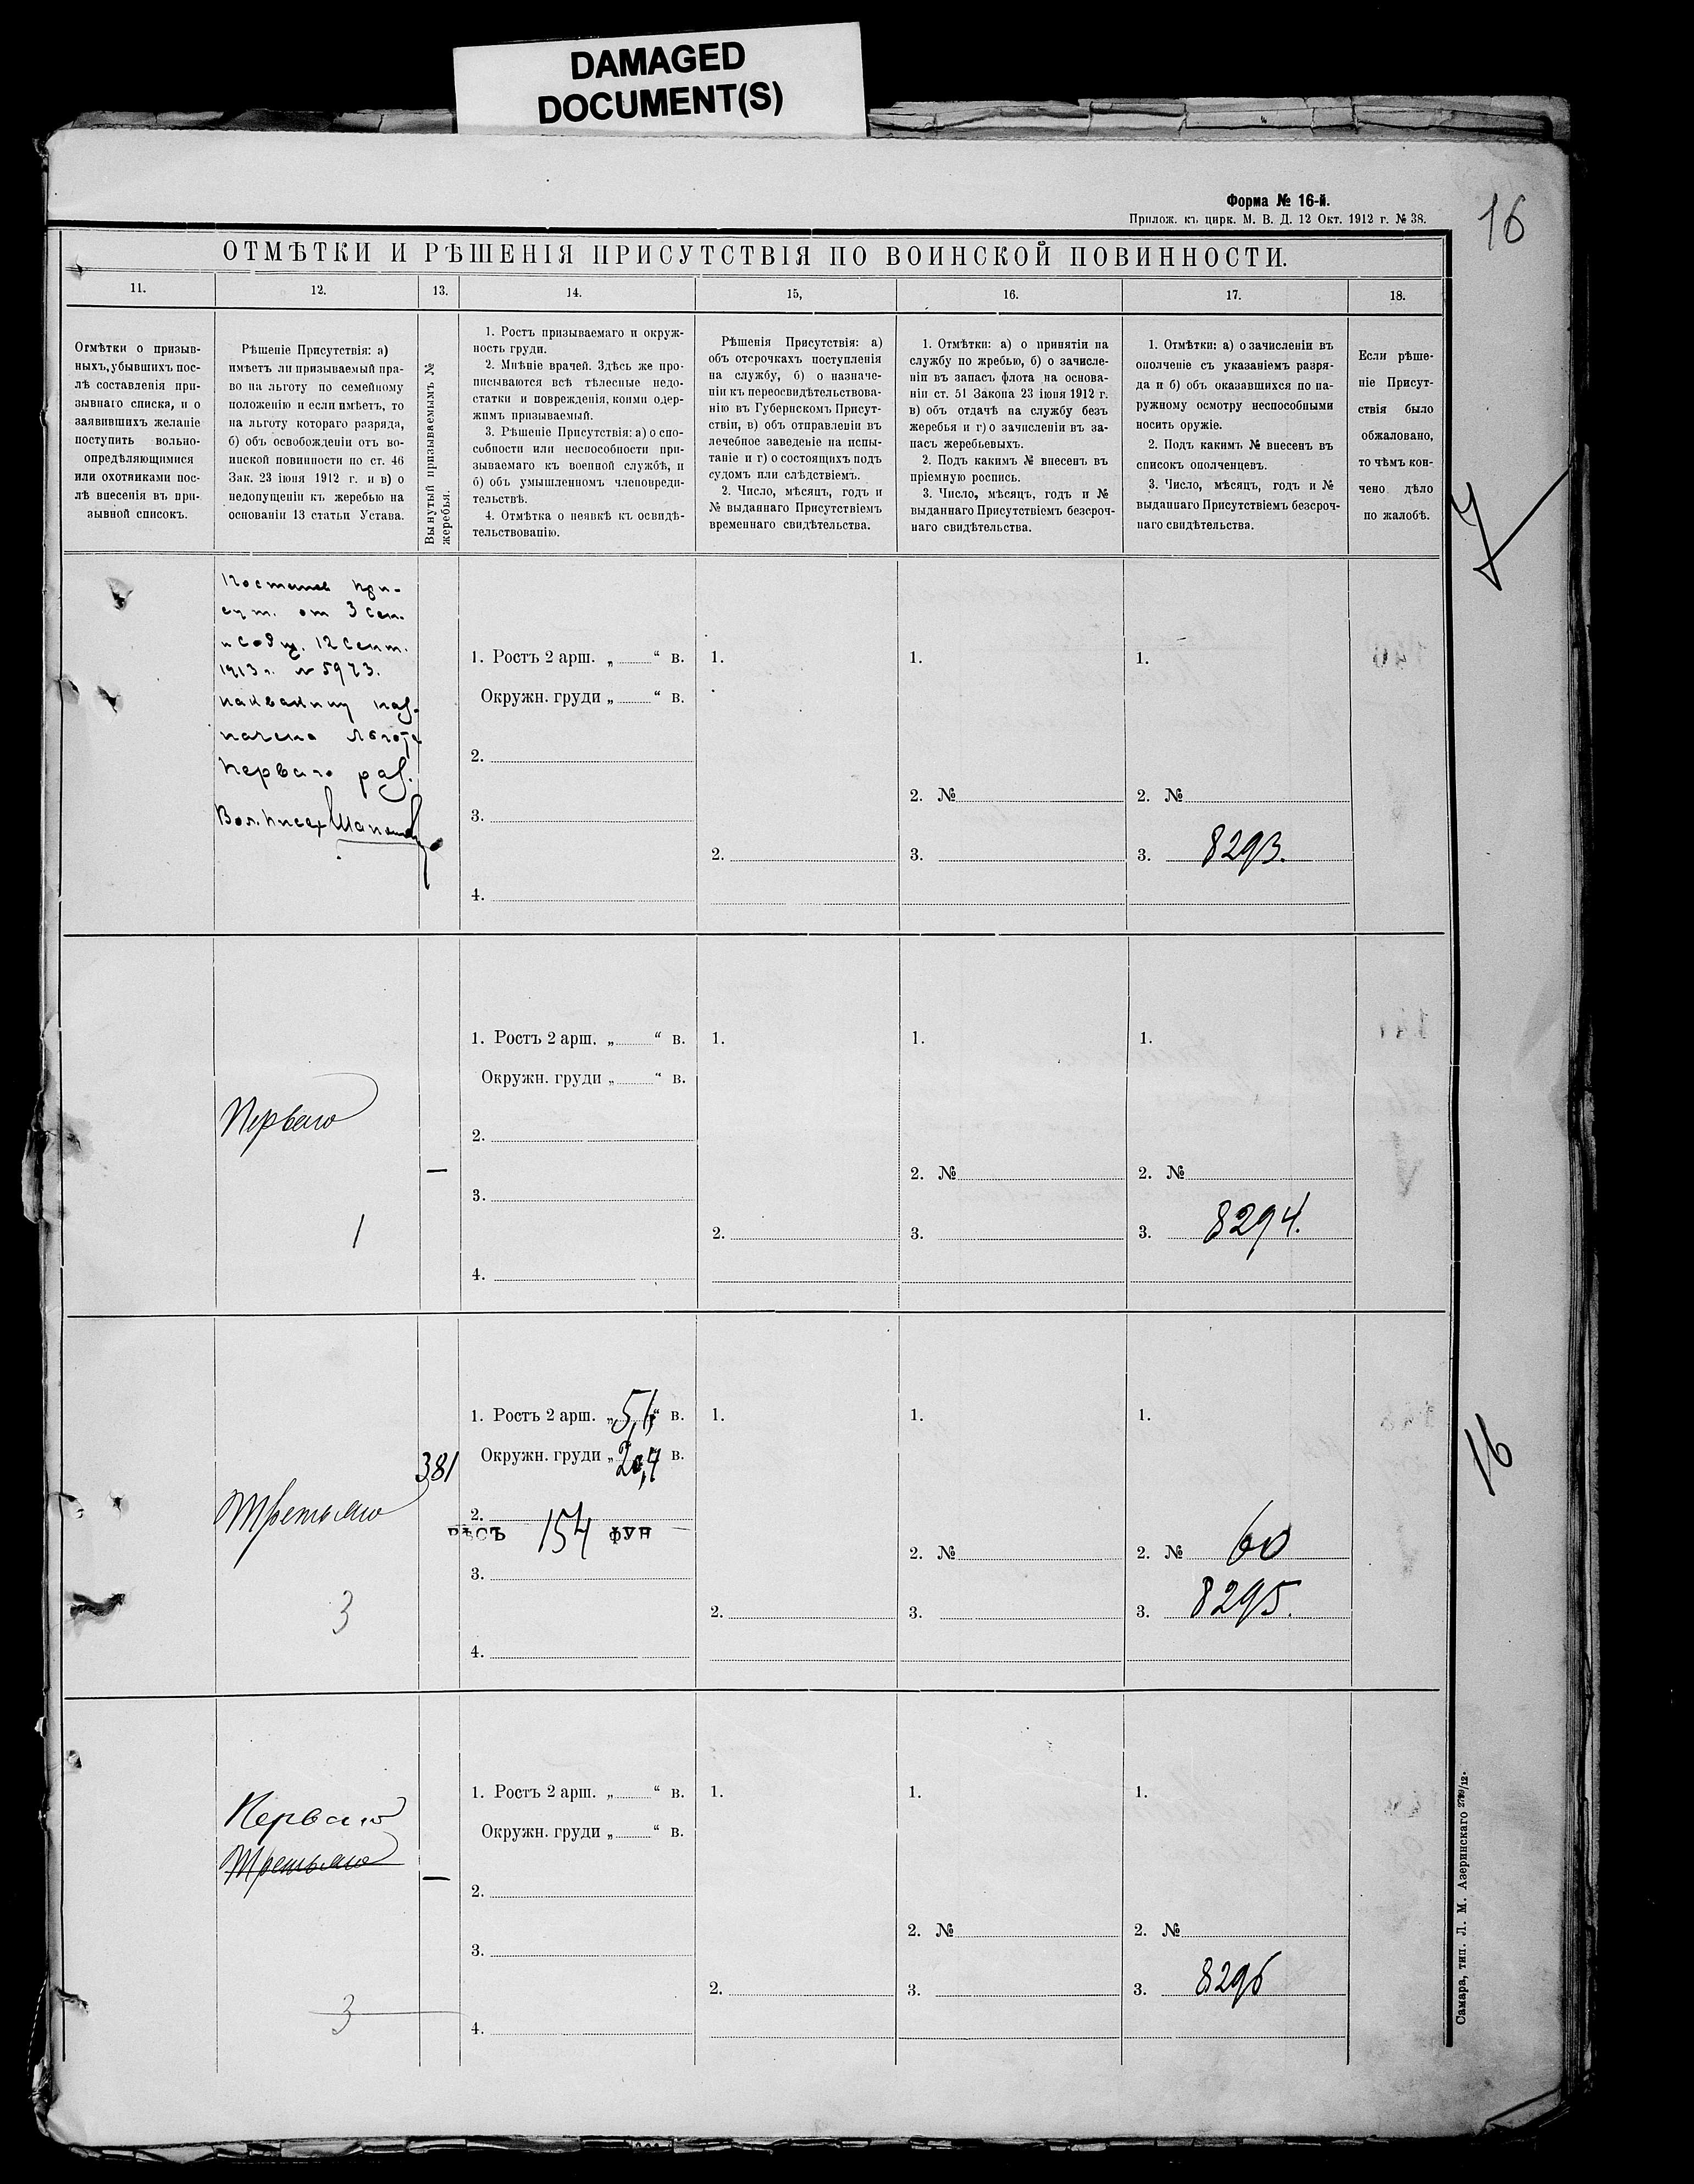 DAMAGED
DOCUMENT(S)
Форма № 16-й.
Прилож. къ цирк. М. В. Д. 12 Окт. 1912 г. № 38.
16
ОТМѢТКИ И РѢШЕНІЯ ПРИСУТСТВІЯ ПО ВОИНСКОЙ ПОВИННОСТИ.
11. 12. 13. 14. 15, 16. 17. 18.
Отмѣтки о призыв-
ныхъ, убывшихъ пос-
лѣ составленія при-
зывнаго списка, и о
заявившихъ желаніе
поступить вольно-
опредѣляющимися
или охотниками пос-
лѣ внесенія въ при-
зывной списокъ.
Рѣшеніе Присутствія: а)
имѣетъ ли призываемый пра-
во на льготу по семейному
положенію и если имѣетъ, то
на льготу котораго разряда,
б) объ освобожденіи отъ во-
инской повинности по ст. 46
Зак. 23 іюня 1912 г. и в) о
недопущеніи къ жеребью на
основаніи 13 статьи Устава.
Вынутый призываемымъ №
жеребья.
1. Ростъ призываемаго и окруж-
ность груди.
2. Мнѣніе врачей. Здѣсь же про-
писываются всѣ тѣлесные недо-
статки и поврежденія, коими одер-
жимъ призываемый.
3. Рѣшеніе Присутствія: а) о спо-
собности или неспособности при-
зываемаго къ военной службѣ, и
б) объ умышленномъ членовреди-
тельствѣ.
4. Отмѣтка о неявкѣ къ освидѣ-
тельствованію.
Рѣшенія Присутствія: а)
объ отсрочкахъ поступленія
на службу, б) о назначе-
ніи къ переосвидѣтельствова-
нію въ Губернскомъ Присут-
ствіи, в) объ отправленіи въ
лечебное заведеніе на испы-
таніе и г) о состоящихъ подъ
судомъ или слѣдствіемъ.
2. Число, мѣсяцъ, годъ и
№ выданнаго Присутствіемъ
временнаго свидѣтельства.
1. Отмѣтки: а) о принятіи на
службу по жребью, б) о зачисле-
ніи въ запасъ флота на основа-
ніи ст. 51 Закона 23 іюня 1912 г.
в) объ отдачѣ на службу безъ
жеребья и г) о зачисленіи въ за-
пасъ жеребьевыхъ.
2. Подъ какимъ № внесенъ въ
пріемную роспись.
3. Число, мѣсяцъ, годъ и №
выданнаго Присутствіемъ безсроч-
наго свидѣтельства.
1. Отмѣтки: а) о зачисленіи въ
ополченіе съ указаніемъ разря-
да и б) объ оказавшихся по на-
ружному осмотру неспособными
носить оружіе.
2. Подъ какимъ № внесенъ въ
списокъ ополченцевъ.
3. Число, мѣсяцъ, годъ и №
выданнаго Присутствіемъ безсроч-
наго свидѣтельства.
Если рѣше-
ніе Присут-
ствія было
обжаловано,
то чѣмъ кон-
чено дѣло
по жалобѣ.
при-
сут. от 3 сен.
12 Сент.
1913 г. № 5973.
наз-
начена льгота
перваго раз.
Вол. писарь
1. Ростъ 2 арш. „ “ в.
Окружн. груди „ “ в.
2.
3.
4.
1.
2.
1.
2. №
3.
1.
2. №
3. 8293.
Перваго
1
—
1. Ростъ 2 арш. „ “ в.
Окружн. груди „ “ в.
2.
3.
4.
1.
2.
1.
2. №
3.
1.
2. №
3. 8294.
Третьяго
3
381
1. Ростъ 2 арш. „ “ в.
Окружн. груди „ 20,4 в.
2.
вѣсъ 154 фун
3.
4.
1.
2.
1.
2. №
3.
1.
2. № 60
3. 8295.
16
Перваго
Третьяго
3
—
1. Ростъ 2 арш. „ “ в.
Окружн. груди „ “ в.
2.
3.
4.
1.
2.
1.
2. №
3.
1.
2. №
3. 8296
Самара, тип. Л. М. Азеринскаго